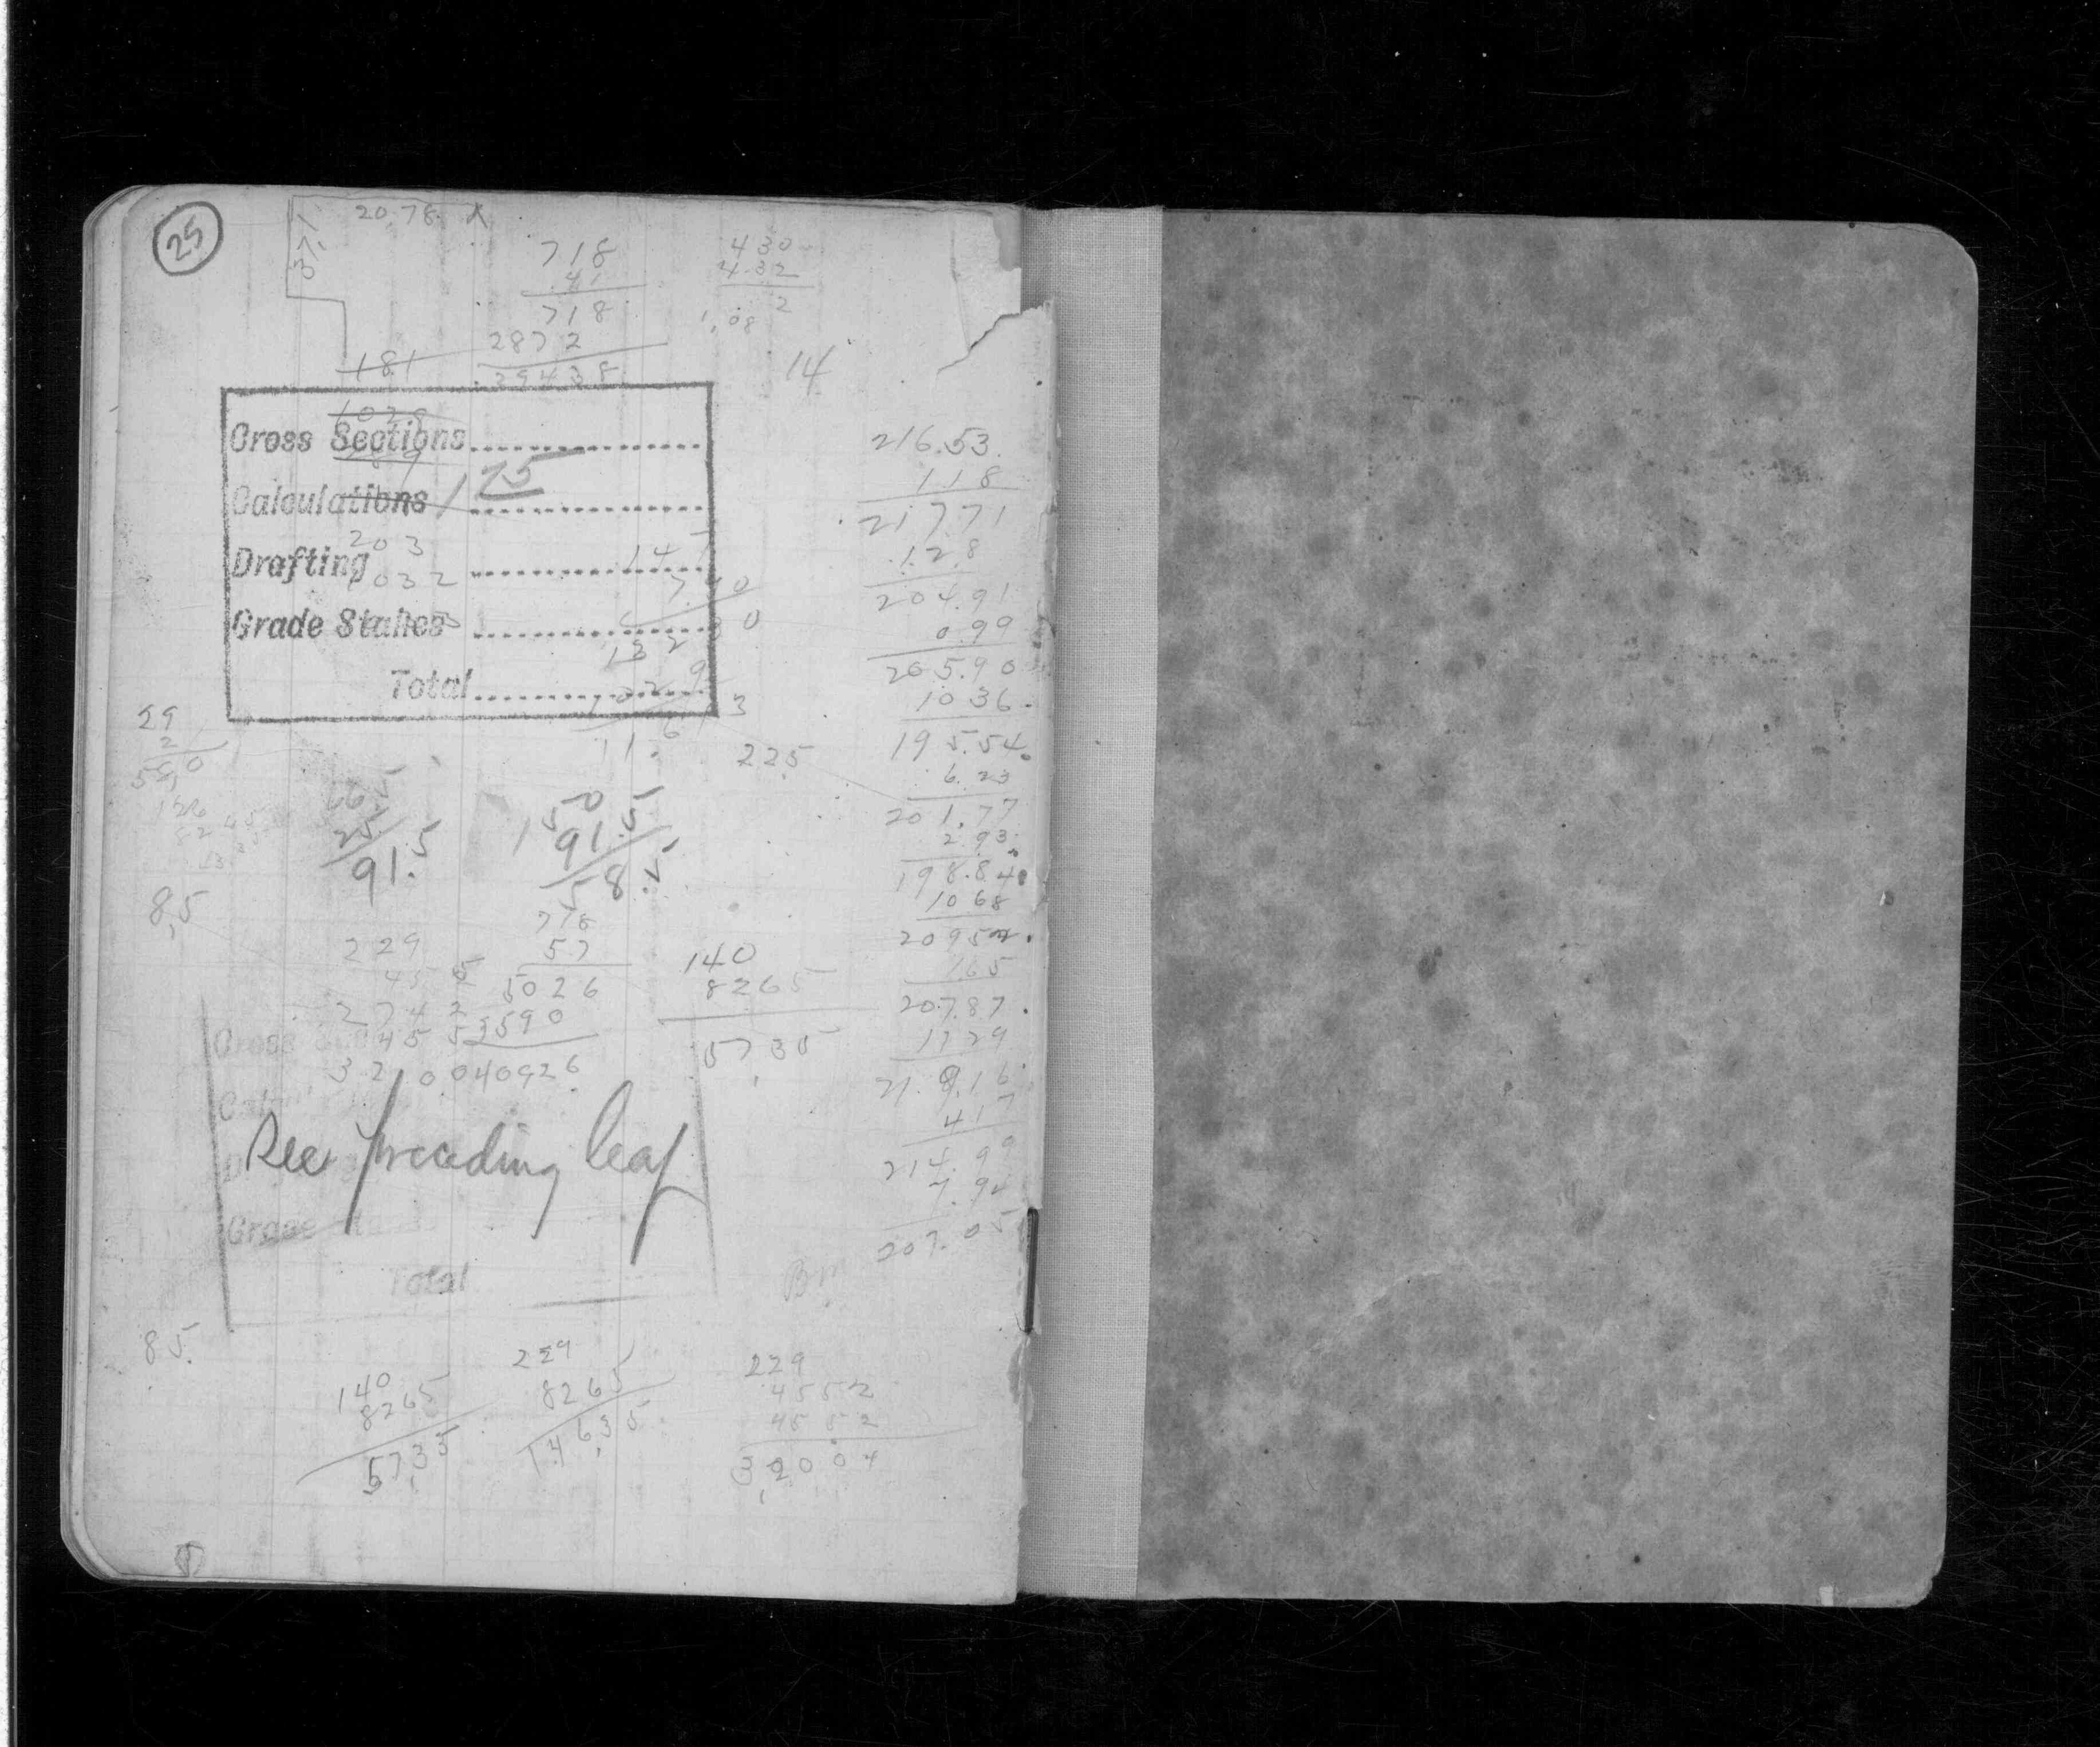 25
20.78 X
37.1
718
.41
718
2872
29438
430
4.32
2
1.08
14
181
1028
Cross Sections
Calculations 175
Drafting
Grade Stakes
Total
203
1032
147
7.40
182
11.6
3
225
216.53
118
217.71
12.8
204.91
0.99
205.90
10 36
195.54
6.23
201.77
2.93
198.84
10 68
209 52
165
207.87
1129
219.16
417
214.99
7.94
207.05
29
2
8.5
66.5
25
91.5
150
91.5
58.5
718
57
5026
3590
40926
229
45 5
274 2
45 5
32 00
140
8265
5735
Cross
See preceding leaf
Grade
Total
BM
85
140
8265
5735
229
8265
14635
229
4552
4552
32004